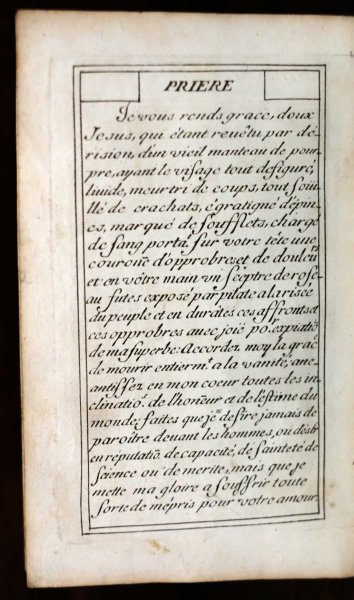 PRIERE
Je vous rends grace, doux
Jesus, qui étant revêtu par de-
rision, d'un vieil manteau de pour-
pre, ayant le visage tout defiguré,
livide, meurtri de coups, tout soüi-
llé de crachats, égratigné d'épin-
es, marqué de soufflets, chargé
de sang porta. sur votre tête une
couroñe d'opprobres, et de douleu
et en vôtre main vn sceptre de rose-
au futes exposé par pilate a la risée
du peuple et en durâtes ces affronts et
ces opprobres avec joie po. expiatio
de ma superbe: Accordez moy la grac
de mourir entierm.t a la vanité; ane-
antissez en mon coeur toutes les in-
clinatio.s de l'hoñeur et de l'estime du
monde; faites que je desire jamais de
paroitre devant les hommes, ou d'estr
en réputatiō de capacité, de sainteté de
science ou de merite, mais que je
mette ma gloire a souffrir toute
sorte de mépris pour votre amour.